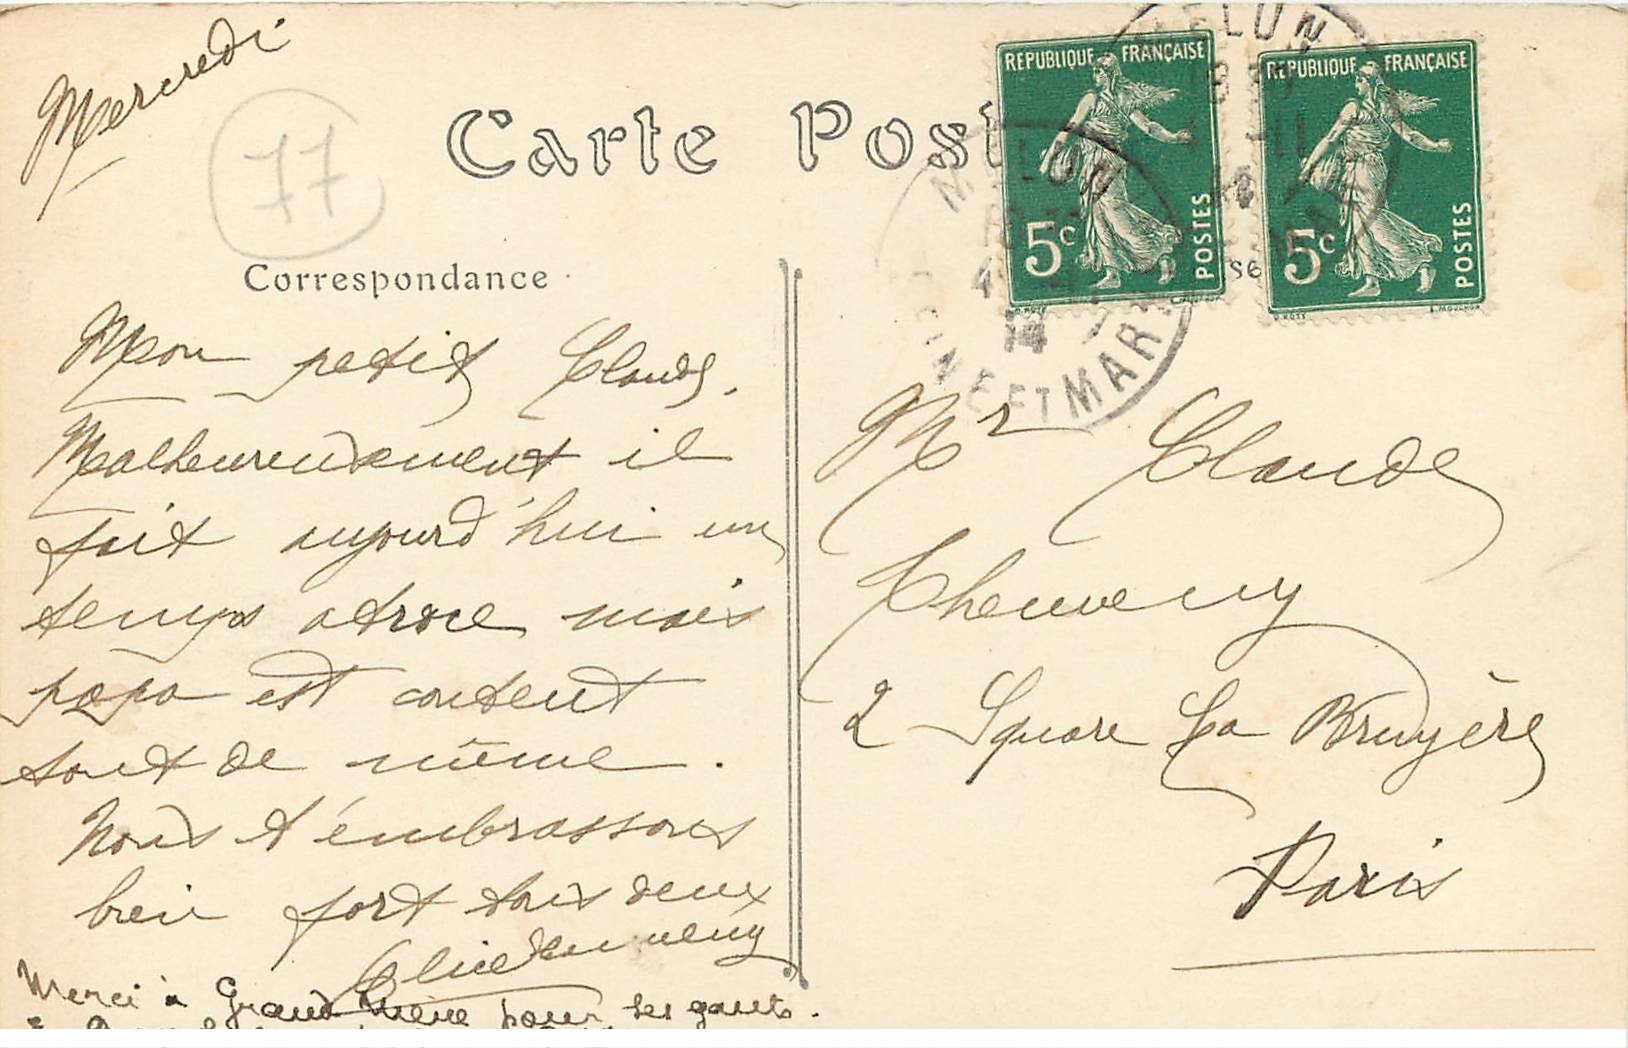 Mercredi
77
Carte Post
Correspondance
Mon petit Claude,
Malheureusement il
fait aujourd'hui un
temps atroce mais
papa est content
tout de même.
Nous t'embrassons
bien fort tous deux
Cheuveny
Merci à Grand Mère pour ses gants.
RÉPUBLIQUE FRANÇAISE
5c
POSTES
RÉPUBLIQUE FRANÇAISE
5c
POSTES
O. ROTY
L. MOUCHON
MELUN
MELUN
14
SEINE ET MARNE
Mr Claude
Cheuveny
2 Square La Bruyère
Paris